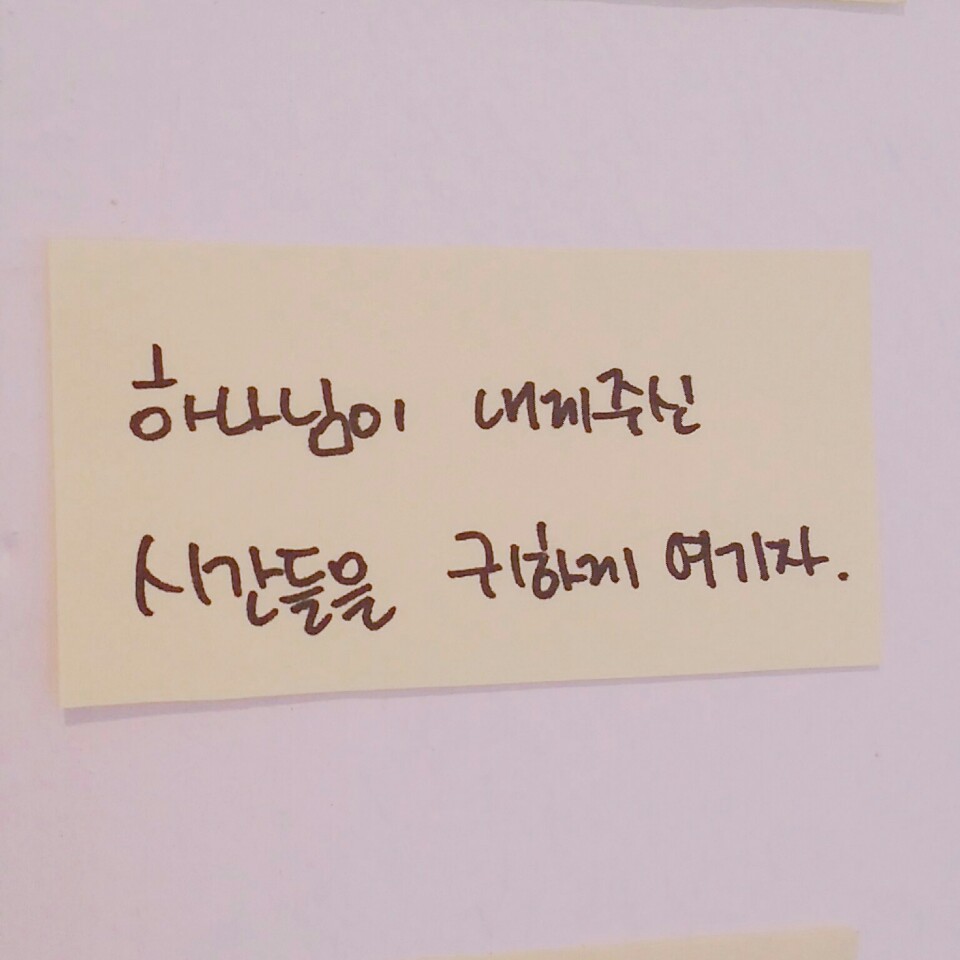 하나님이 내게주신
시간들을 귀하게 여기자.